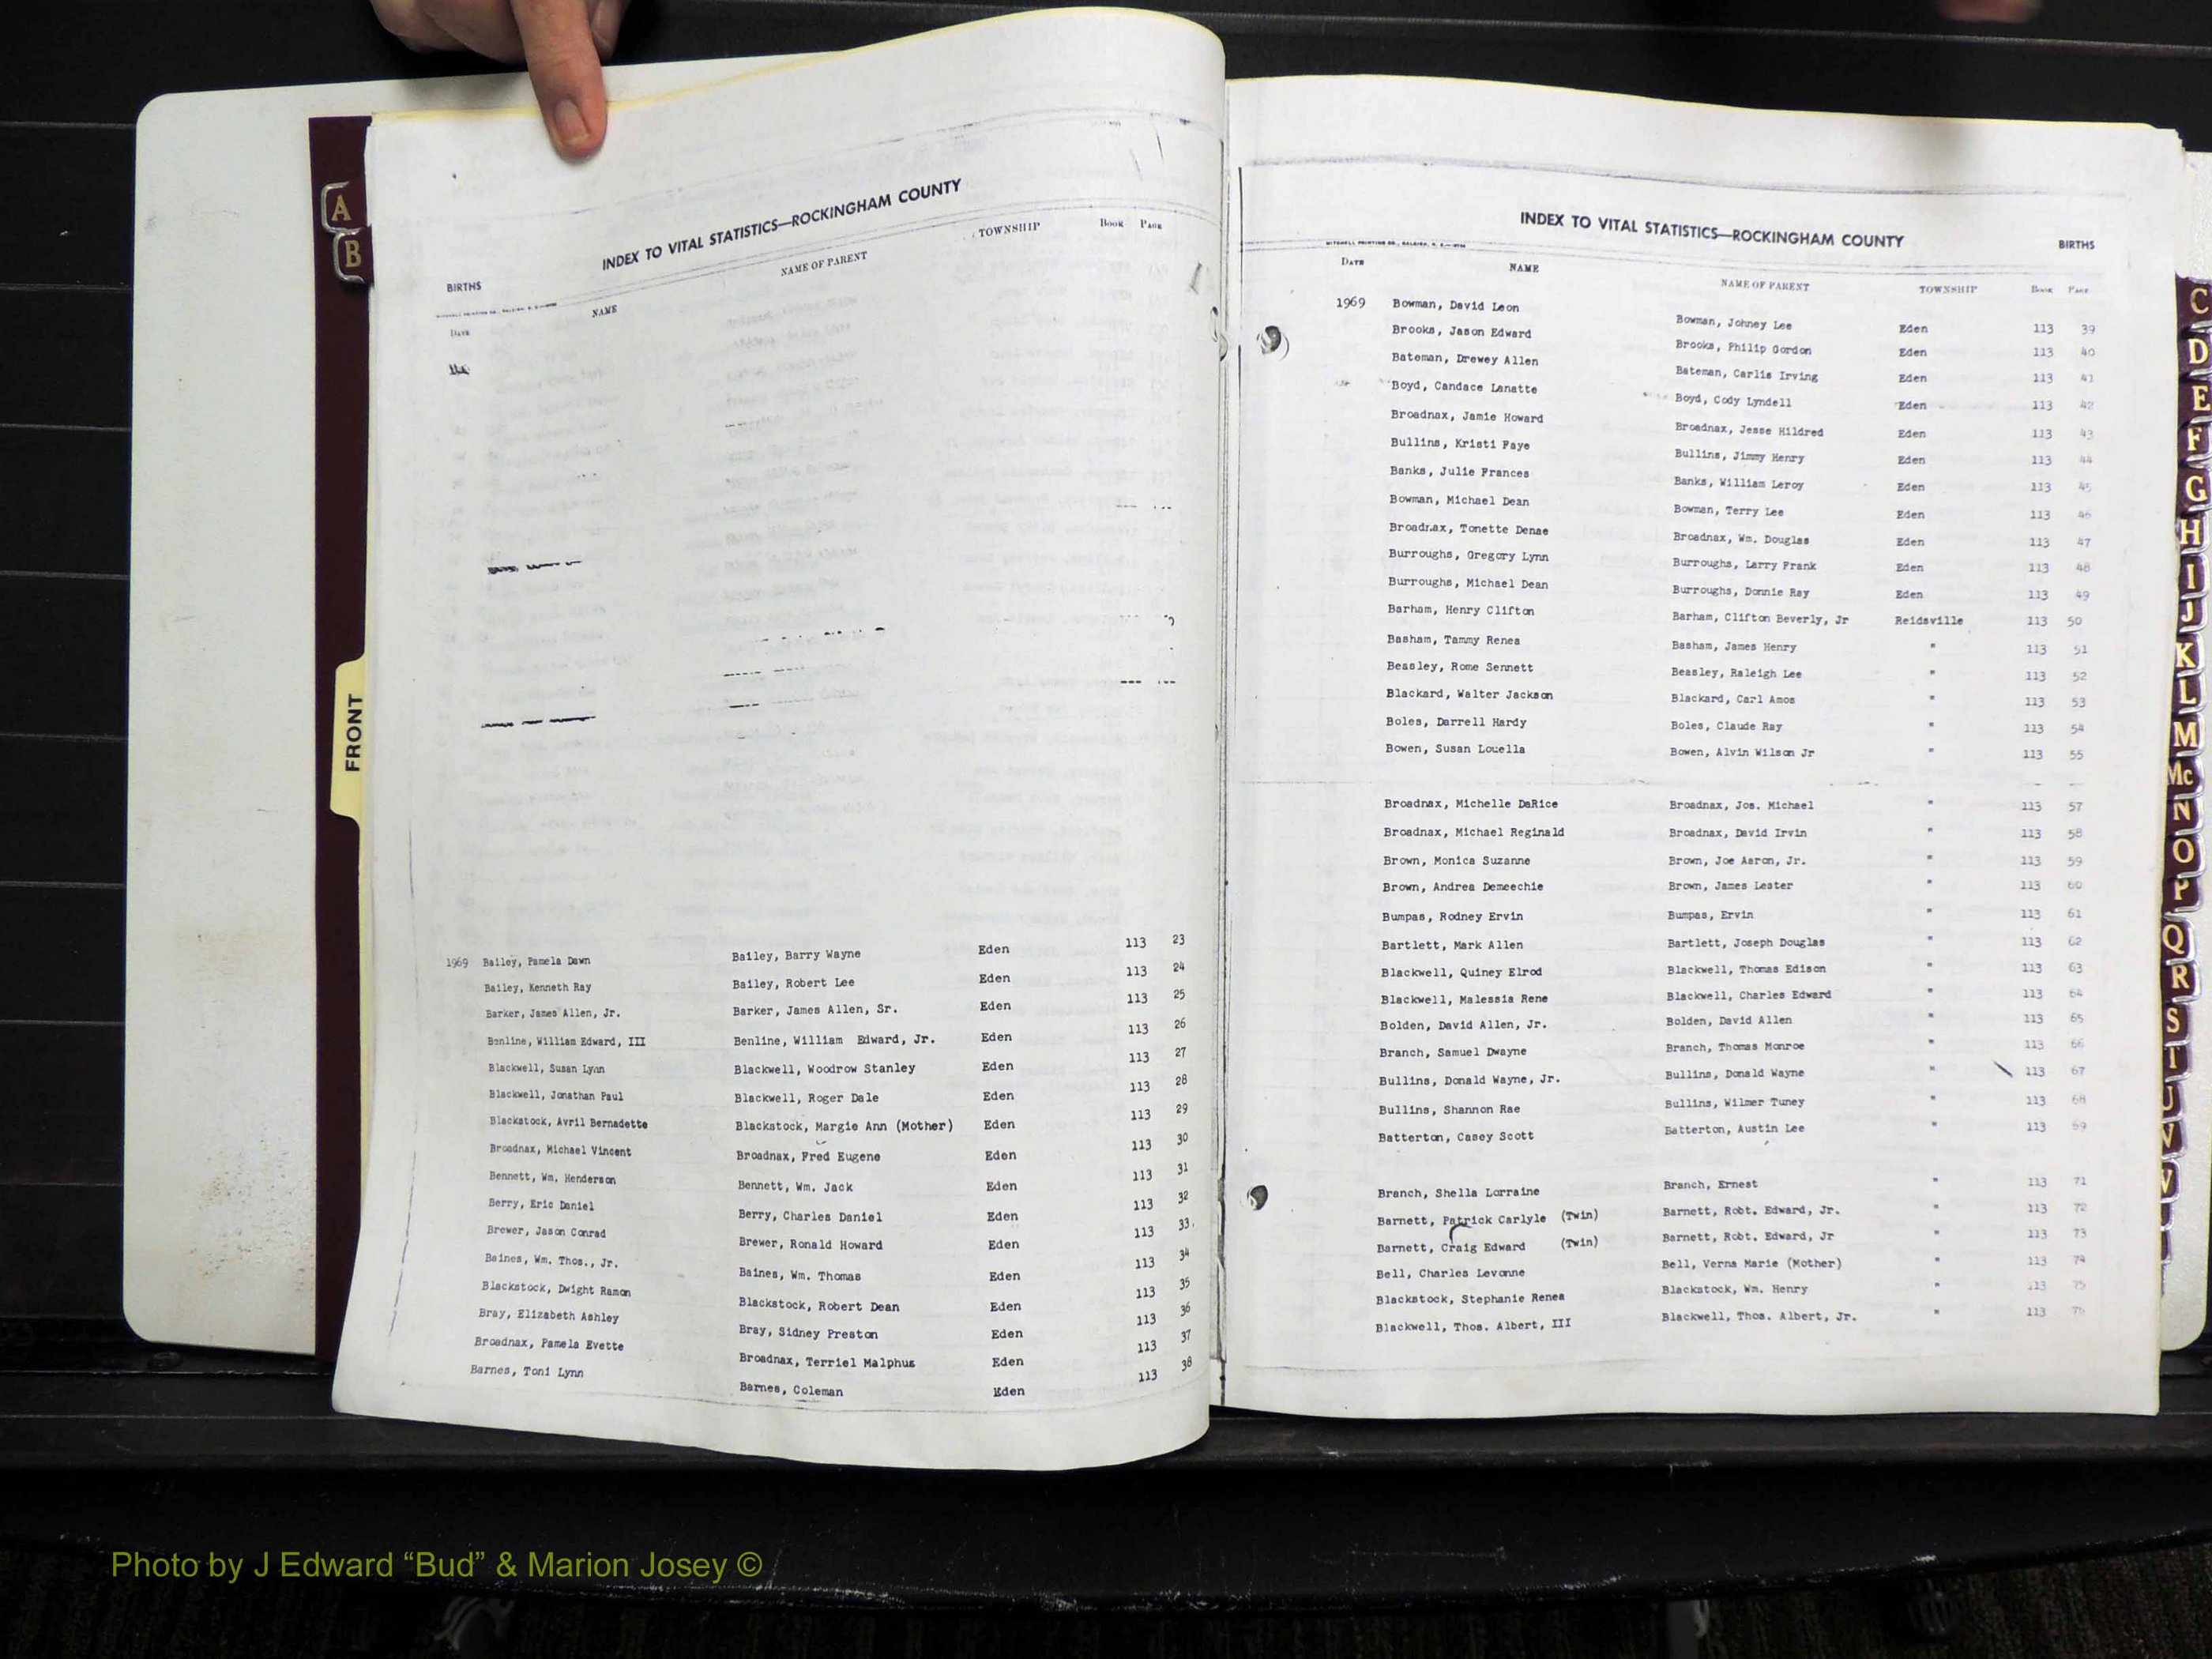 A
B
FRONT
INDEX TO VITAL STATISTICS—ROCKINGHAM COUNTY
BIRTHS
DATE NAME NAME OF PARENT TOWNSHIP BOOK PAGE
1969 Bailey, Pamela Dawn Bailey, Barry Wayne Eden 113 23
Bailey, Kenneth Ray Bailey, Robert Lee Eden 113 24
Barker, James Allen, Jr. Barker, James Allen, Sr. Eden 113 25
Benline, William Edward, III Benline, William Edward, Jr. Eden 113 26
Blackwell, Susan Lynn Blackwell, Woodrow Stanley Eden 113 27
Blackwell, Jonathan Paul Blackwell, Roger Dale Eden 113 28
Blackstock, Avril Bernadette Blackstock, Margie Ann (Mother) Eden 113 29
Broadnax, Michael Vincent Broadnax, Fred Eugene Eden 113 30
Bennett, Wm. Henderson Bennett, Wm. Jack Eden 113 31
Berry, Eric Daniel Berry, Charles Daniel Eden 113 32
Brewer, Jason Conrad Brewer, Ronald Howard Eden 113 33
Baines, Wm. Thos., Jr. Baines, Wm. Thomas Eden 113 34
Blackstock, Dwight Ramon Blackstock, Robert Dean Eden 113 35
Bray, Elizabeth Ashley Bray, Sidney Preston Eden 113 36
Broadnax, Pamela Evette Broadnax, Terriel Malphus Eden 113 37
Barnes, Toni Lynn Barnes, Coleman Eden 113 38
INDEX TO VITAL STATISTICS—ROCKINGHAM COUNTY
BIRTHS
DATE NAME NAME OF PARENT TOWNSHIP BOOK PAGE
1969 Bowman, David Leon Bowman, Johney Lee Eden 113 39
Brooks, Jason Edward Brooks, Philip Gordon Eden 113 40
Bateman, Drewey Allen Bateman, Carlis Irving Eden 113 41
Boyd, Candace Lanatte Boyd, Cody Lyndell Eden 113 42
Broadnax, Jamie Howard Broadnax, Jesse Hildred Eden 113 43
Bullins, Kristi Faye Bullins, Jimmy Henry Eden 113 44
Banks, Julie Frances Banks, William Leroy Eden 113 45
Bowman, Michael Dean Bowman, Terry Lee Eden 113 46
Broadnax, Tonette Denae Broadnax, Wm. Douglas Eden 113 47
Burroughs, Gregory Lynn Burroughs, Larry Frank Eden 113 48
Burroughs, Michael Dean Burroughs, Donnie Ray Eden 113 49
Barham, Henry Clifton Barham, Clifton Beverly, Jr Reidsville 113 50
Basham, Tammy Renea Basham, James Henry " 113 51
Beasley, Rome Sennett Beasley, Raleigh Lee " 113 52
Blackard, Walter Jackson Blackard, Carl Amos " 113 53
Boles, Darrell Hardy Boles, Claude Ray " 113 54
Bowen, Susan Louella Bowen, Alvin Wilson Jr " 113 55
Broadnax, Michelle DaRice Broadnax, Jos. Michael " 113 57
Broadnax, Michael Reginald Broadnax, David Irvin " 113 58
Brown, Monica Suzanne Brown, Joe Aaron, Jr. " 113 59
Brown, Andrea Demeechie Brown, James Lester " 113 60
Bumpas, Rodney Ervin Bumpas, Ervin " 113 61
Bartlett, Mark Allen Bartlett, Joseph Douglas " 113 62
Blackwell, Quiney Elrod Blackwell, Thomas Edison " 113 63
Blackwell, Malessia Rene Blackwell, Charles Edward " 113 64
Bolden, David Allen, Jr. Bolden, David Allen " 113 65
Branch, Samuel Dwayne Branch, Thomas Monroe " 113 66
Bullins, Donald Wayne, Jr. Bullins, Donald Wayne " 113 67
Bullins, Shannon Rae Bullins, Wilmer Tuney " 113 68
Batterton, Casey Scott Batterton, Austin Lee " 113 69
Branch, Shella Lorraine Branch, Ernest " 113 71
Barnett, Patrick Carlyle (Twin) Barnett, Robt. Edward, Jr. " 113 72
Barnett, Craig Edward (Twin) Barnett, Robt. Edward, Jr " 113 73
Bell, Charles Levonne Bell, Verna Marie (Mother) " 113 74
Blackstock, Stephanie Renea Blackstock, Wm. Henry " 113 75
Blackwell, Thos. Albert, III Blackwell, Thos. Albert, Jr. " 113 76
C
D
E
F
G
H
I
J
K
L
M
Mc
N
O
P
Q
R
S
T
U
V
W
Photo by J Edward “Bud” & Marion Josey ©